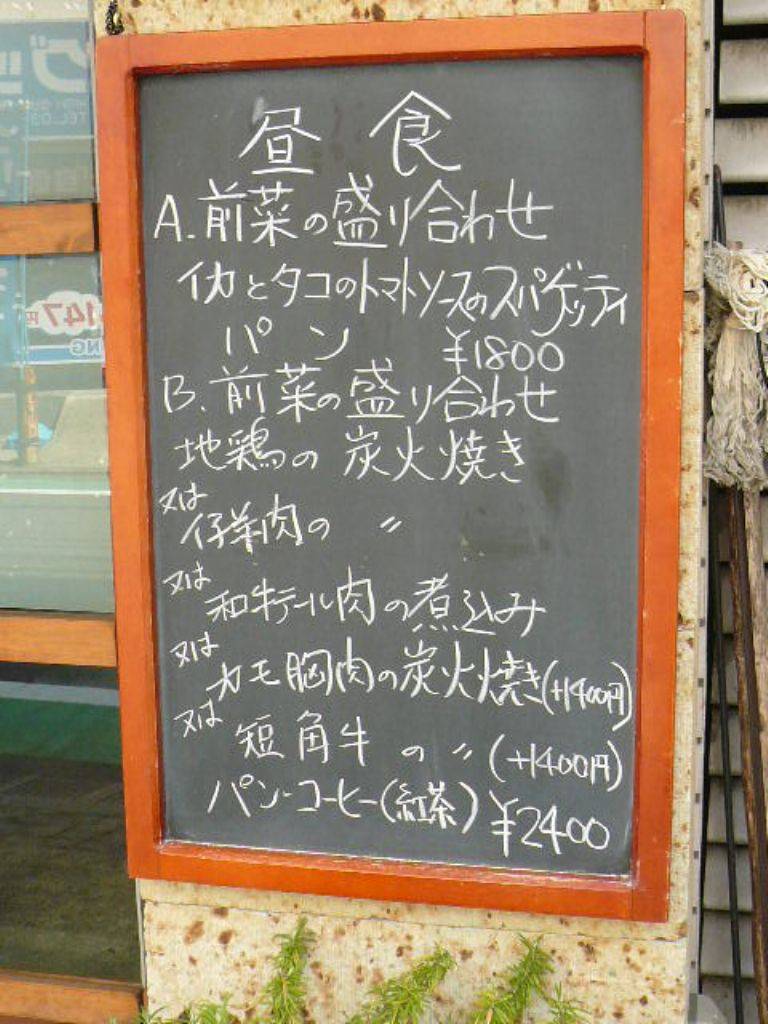 昼食
A.前菜の盛り合わせ
イカとタコのトマトソースのスパゲッティ
パン ¥1800
B.前菜の盛り合わせ
地鶏の炭火焼き
又は
仔羊肉の 〃
又は
和牛テール肉の煮込み
又は
カモ胸肉の炭火焼き(+1400円)
又は
短角牛の 〃 (+1400円)
パン・コーヒー(紅茶) ¥2400
147円